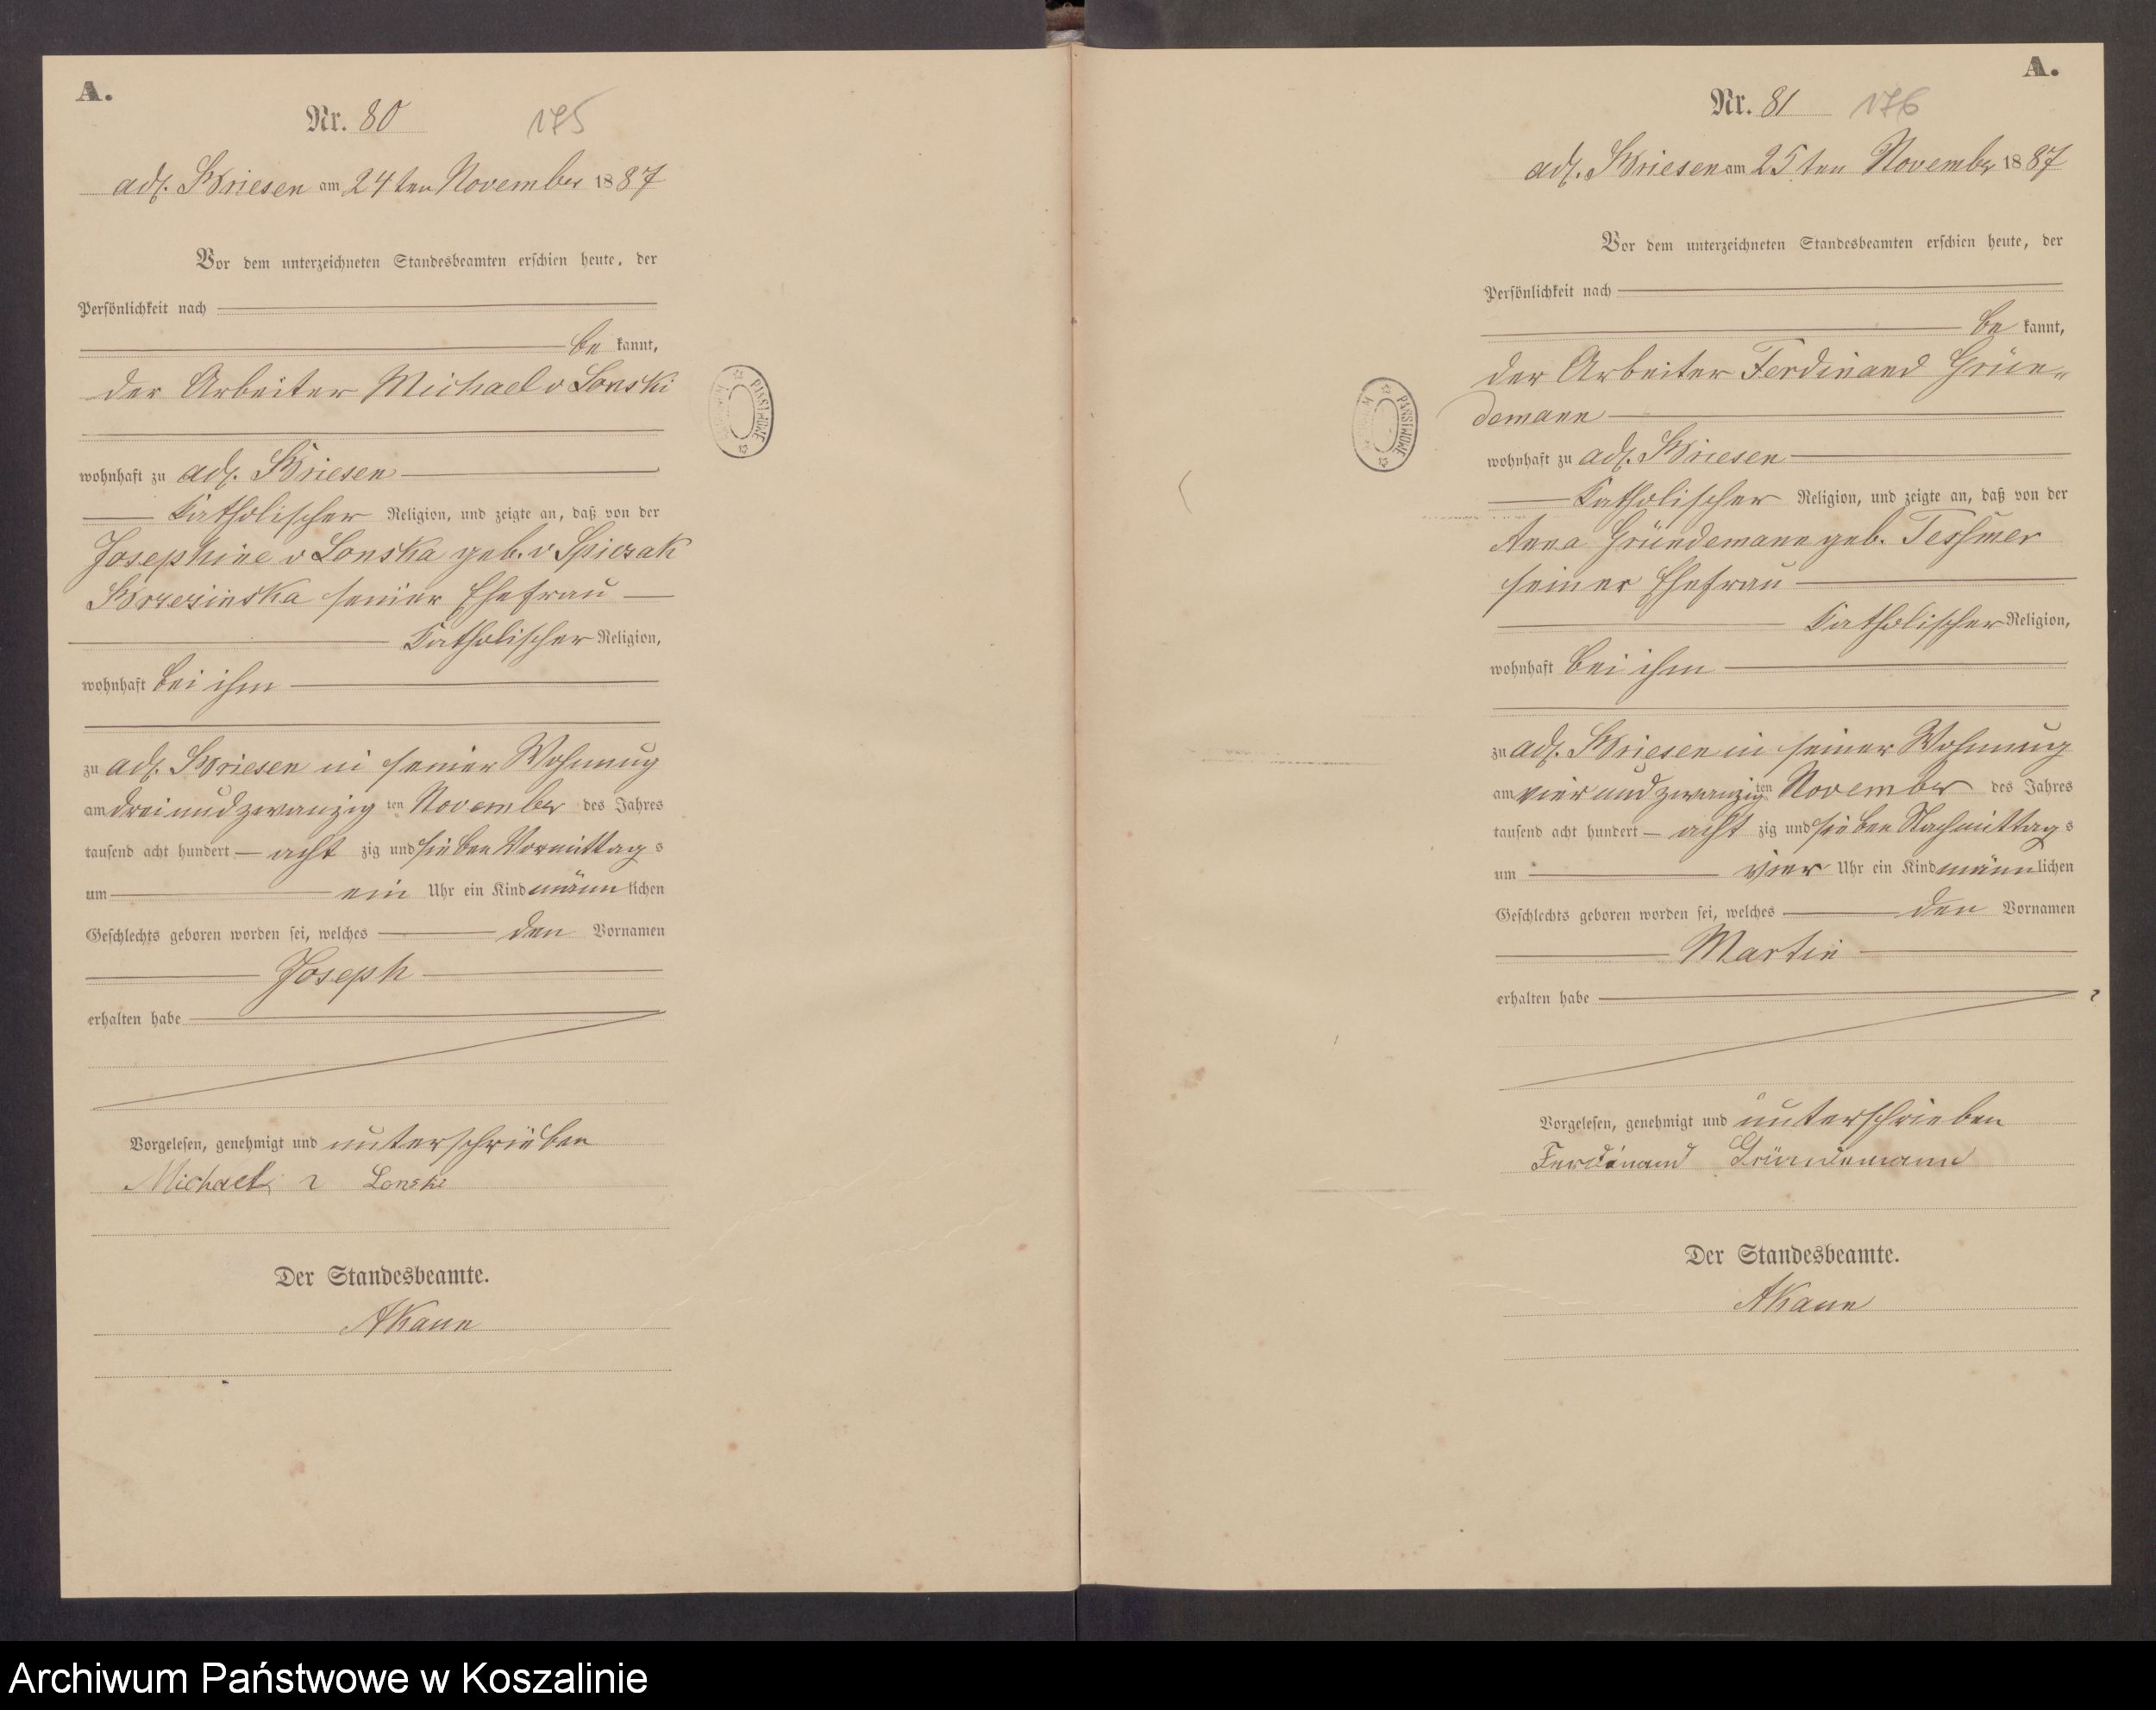 A.
Nr. 80
175
adl. Briesen am 24ten November 1887
Vor dem unterzeichneten Standesbeamten erschien heute, der
Persönlichkeit nach
be kannt,
der Arbeiter Michael v Lonski
wohnhaft zu adl. Briesen
Katholischer Religion, und zeigte an, daß von der
Josephine v Lonska geb. v Spiczak
Brzezinska seiner Ehefrau
Katholischer Religion,
wohnhaft bei ihm
zu adl. Briesen in seiner Wohnung
am dreiundzwanzig ten November des Jahres
tausend acht hundert acht zig und sieben Vormittag s
um ein Uhr ein Kind männ lichen
Geschlechts geboren worden sei, welches den Vornamen
Joseph
erhalten habe
Vorgelesen, genehmigt und unterschrieben
Michael v Lonski
Der Standesbeamte.
A.
Nr. 81
176
adl. Briesen am 25ten November 1887
Vor dem unterzeichneten Standesbeamten erschien heute, der
Persönlichkeit nach
be kannt,
der Arbeiter Ferdinand Grün-
demann
wohnhaft zu adl. Briesen
Katholischer Religion, und zeigte an, daß von der
Anna Gründemann geb. Tessmer
seiner Ehefrau
Katholischer Religion,
wohnhaft bei ihm
zu adl. Briesen in seiner Wohnung
am vierundzwanzig ten November des Jahres
tausend acht hundert acht zig und sieben Nachmittag s
um vier Uhr ein Kind männ lichen
Geschlechts geboren worden sei, welches den Vornamen
Martin
erhalten habe
Vorgelesen, genehmigt und unterschrieben
Ferdinand Gründemann
Der Standesbeamte.
Archiwum Państwowe w Koszalinie